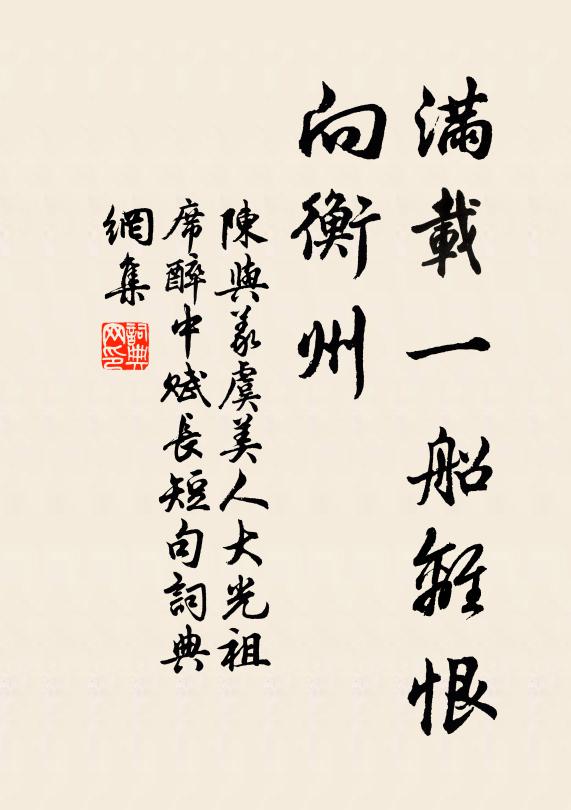 滿載一船離恨
向衡州
陳與義虞美人大光祖
席醉中賦長短句詞典
網集
詞典网印